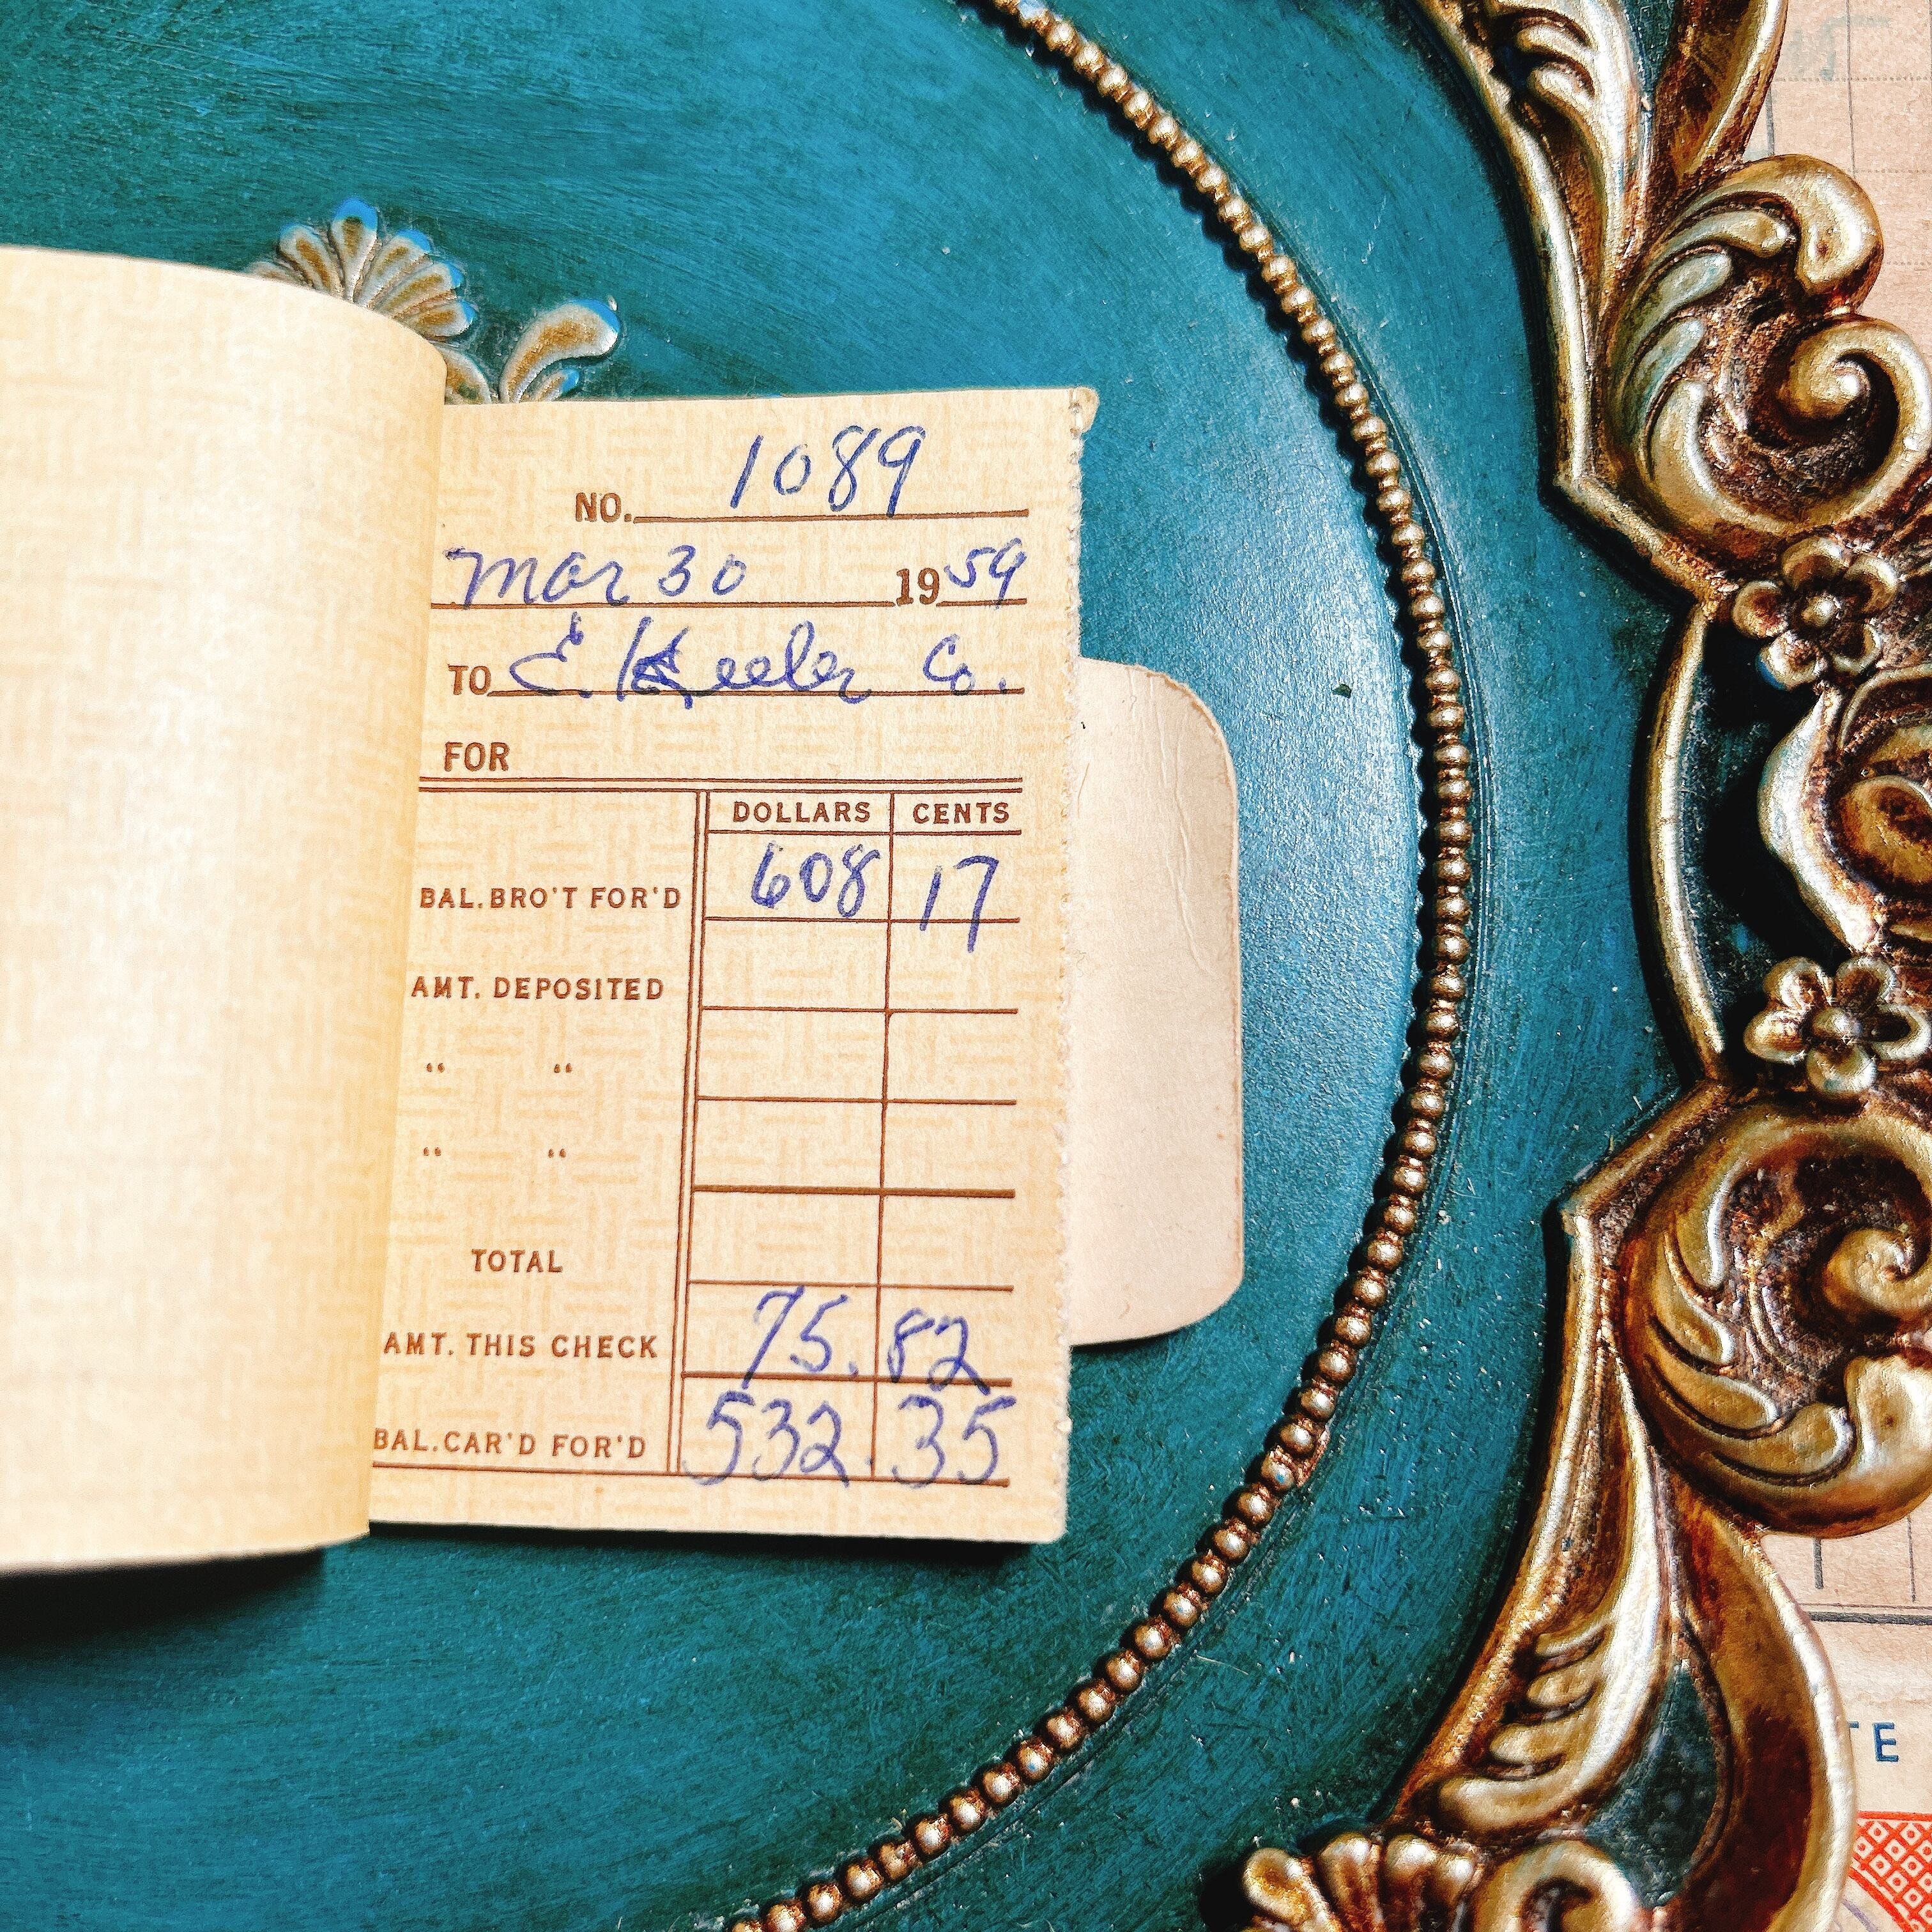 NO. 1089
Mar 30 1959
TO E. Keeler Co.
FOR
DOLLARS CENTS
BAL. BRO'T FOR'D 608 17
AMT. DEPOSITED
“ “
“ “
TOTAL
AMT. THIS CHECK 75. 82
BAL. CAR'D FOR'D 532. 35
TE